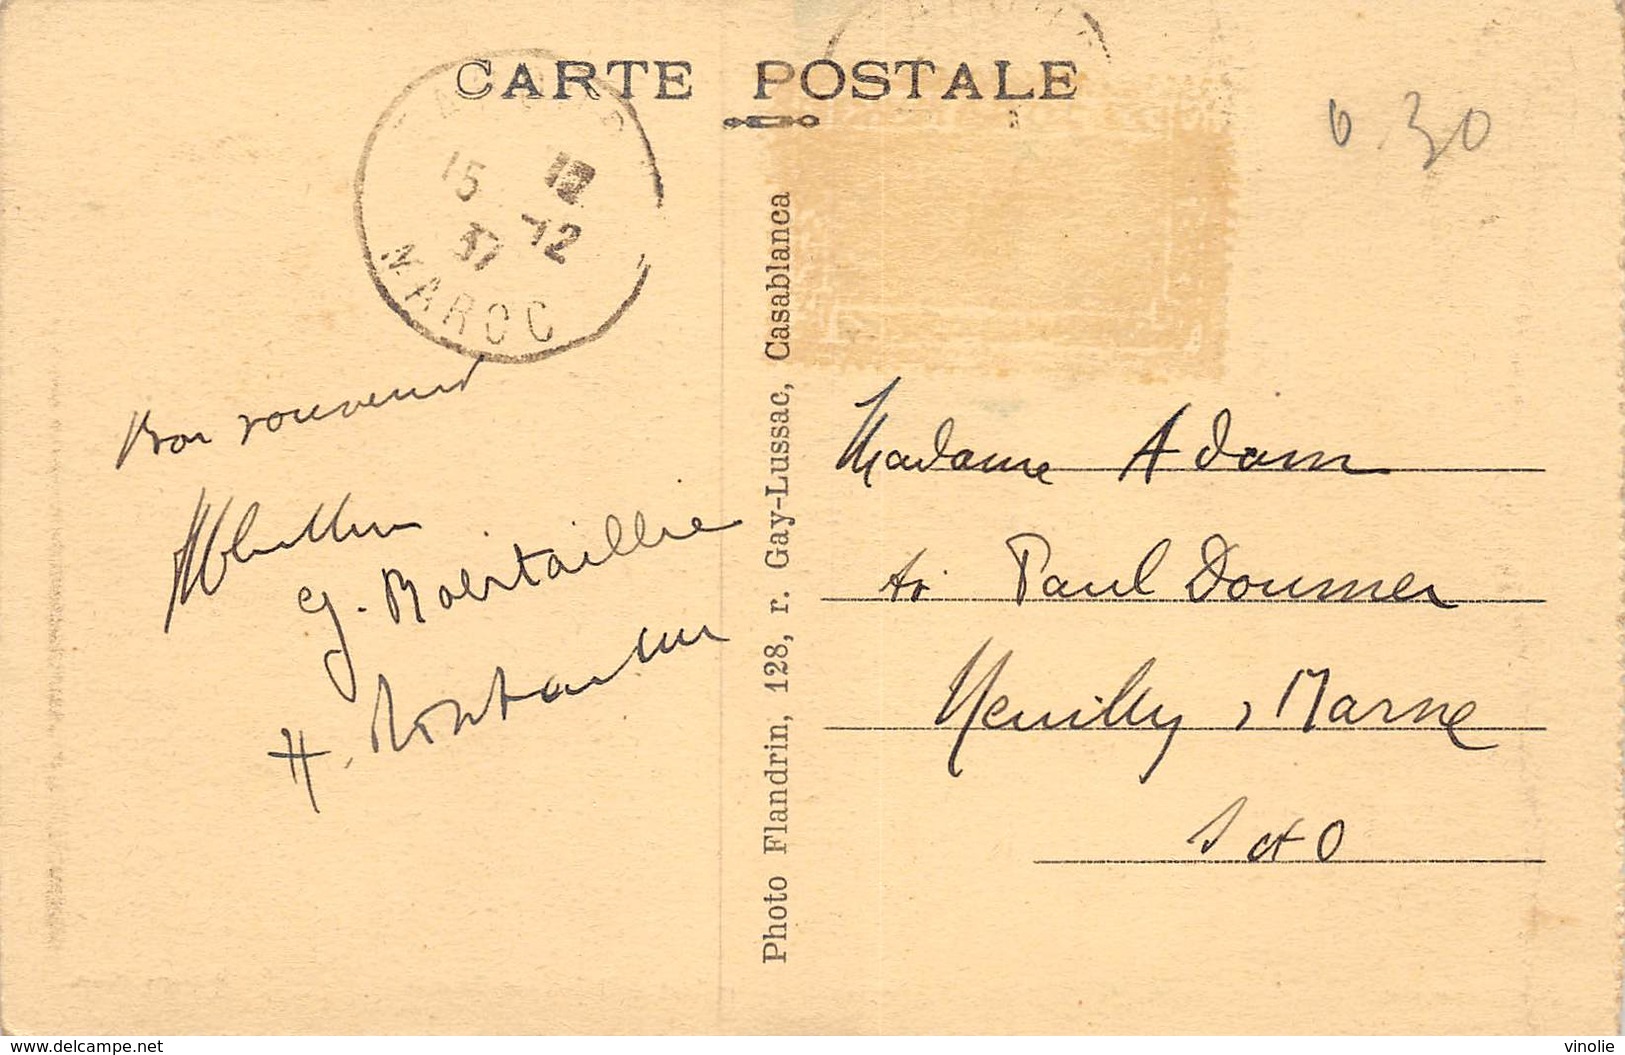 CARTE POSTALE
0.30
15 12
37
MAROC
Bon souvenir
Photo Flandrin, 128, r. Gay-Lussac, Casablanca
Madame Adam
Paul Doumer
Neuilly, Marne
S et O
www.delcampe.net
vinolie